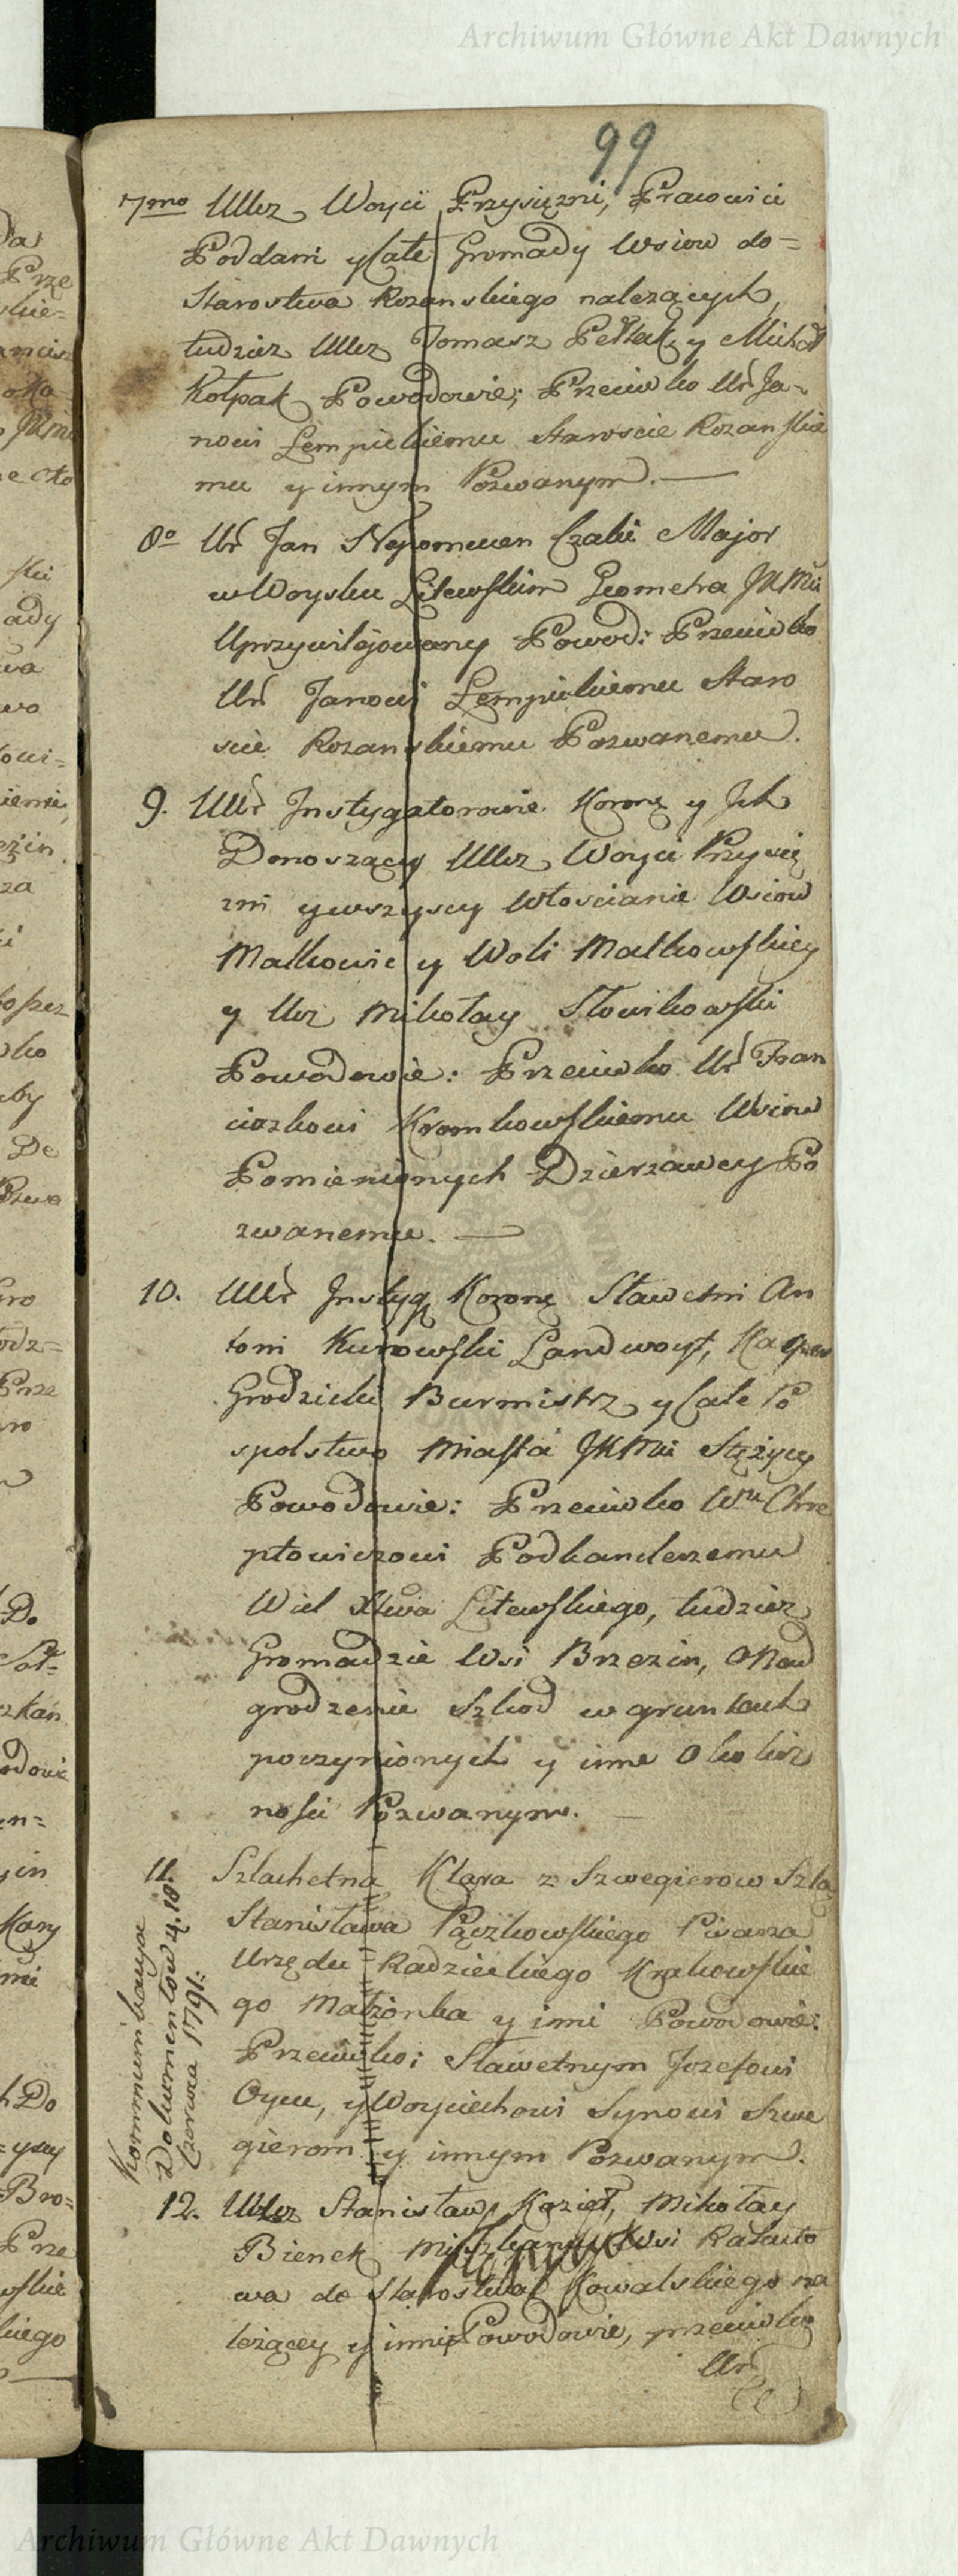 Archiwum Główne Akt Dawnych
99
7mo Ucz Woyci Przysięzni, Pracowici
Poddani y Całe Gromady Wsiow do=
Starostwa Rozanskiego należących
tudzież Ucz Tomasz Pełtak y Michał
Kołpak Powodowie; Przeciwko Ur Ja-
nowi Lempickiemu Staroscie Rozanskie
mu y innym Pozwanym. —
8o Ur Jan Nepomucen Czaki Major
w Woysku Litewskim Geometra JKMci
Uprzywilejowany Powod: Przeciwko
Ur Janowi Lempickiemu Staro
scie Rozanskiemu Pozwanemu.
9. UUr Instygatorowie Koronę y Ich
Donoszący Ucz Woyci Przysię
zni y wszyscy Włoscianie Wsiow
Malkowic y Woli Malkowskiey
y Ucz Mikołay Słowikowski
Powodowie: Przeciwko Ur Fran
ciszkowi Kromkowskiemu Wsiow
Pomienionych Dzierzawcy Po
zwanemu. —
10. UUr Instyg Koronę Sławetni An
toni Kunowski Landwoyt, Kasper
Grodzicki Burmistrz y Całe Po
spolstwo Miasta JKMci Stężycy
Powodowie: Przeciwko Wu Chre
ptowiczowi Podkanclerzemu
Wiel Xtwa Litewskiego, tudzież
Gromadzie Wsi Brzezin, O Nad
grodzenie Szkod w gruntach
poczynionych y inne Okolicz
nosci Pozwanym. —
11. Szlachetna Klara z Szwegierow Szla
Stanisława Pączkowskiego Pisarza
Urzędu Radzieckiego Krakowskie
go Małżonka y inni Powodowie:
Przeciwko: Sławetnym Jozefowi
Oycu, y Woyciechowi Synowi Szwe
gierom y innym Pozwanym.
Kommunikacya
Dokumentow d. 18
Czerwca 1791.
12. Ucz Stanisław Kozieł, Mikołay
Bienek Mieszkancy Wsi Rakuto
wa do Starostwa Kowalskiego na
leżącey y inni Powodowie, przeciwko
Ur
Archiwum Główne Akt Dawnych